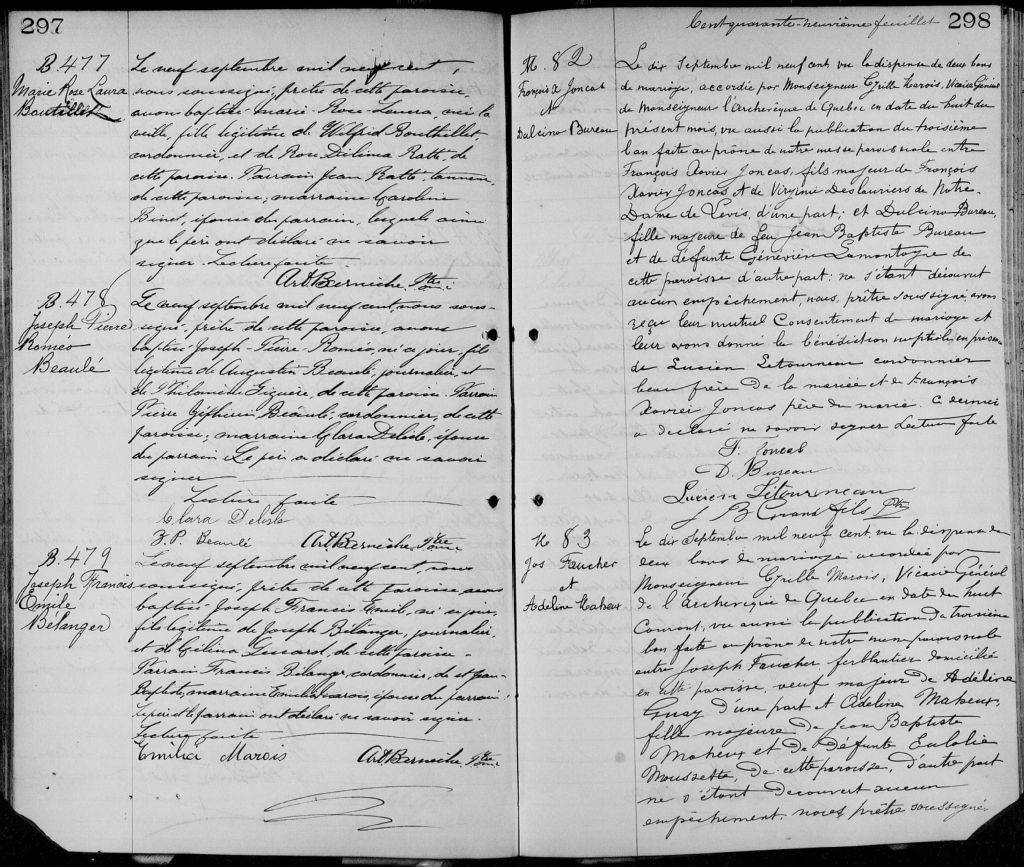 297
B. 477
Marie Rose Laura
Boutillet
Le neuf septembre mil neuf cent,
nous soussigné, prêtre de cette paroisse,
avons baptisé Marie-Rose-Laura, née la
veille, fille légitime de Wilfrid Bouthillet,
cordonnier, et de Rose Délima Ratté, de
cette paroisse. Parrain Jean Ratté, tanneur,
de cette paroisse; marraine Caroline
Binet, épouse du parrain, lesquels ainsi
que le père ont déclaré ne savoir
signer. Lecture faite.
Art. Bernèche, Ptre
B. 478
Joseph Pierre
Roméo
Beaulé
Le neuf septembre mil neuf cent, nous sous-
signé, prêtre de cette paroisse, avons
baptisé Joseph-Pierre-Roméo, né ce jour, fils
légitime de Augustin Beaulé, journalier, et
de Philomène Giguère, de cette paroisse. Parrain
Pierre Beaulé, cordonnier, de cette
paroisse; marraine Clara Delisle, épouse
du parrain. Le père a déclaré ne savoir
signer
Lecture faite
Clara Delisle
J. P. Beaulé Art. Bernèche, Ptre
B. 479
Joseph Francis
Emile
Bélanger
Le neuf septembre mil neuf cent, nous
soussigné, prêtre de cette paroisse avons
baptisé Joseph Francis Emile, né ce jour,
fils légitime de Joseph Bélanger, journalier,
et de Célina, de cette paroisse.
Parrain Francis Bélanger, cordonnier, de St Jean
Bte, marraine Emilia Marois, épouse du parrain.
Le père et le parrain ont déclaré ne savoir signer.
Lecture faite
Emilia Marois Art. Bernèche, Ptre
Cent quarante-neuvième feuillet 298
M. 82
François X Joncas
&
Dulcino Bureau
Le dix Septembre mil neuf cent, vu la dispense de deux bans
de mariage, accordée par Monseigneur Cyrille Marois, Vicaire Général
de Monseigneur l'Archevêque de Québec en date du huit du
présent mois, vu aussi la publication du troisième
ban faite au prône de notre messe paroissiale entre
François Xavier Joncas, fils majeur de François
Xavier Joncas & de Virginie Deslauriers de Notre-
Dame de Lévis, d'une part; et Dulcino Bureau,
fille majeure de feu Jean Baptiste Bureau
et de défunte Génévière Lamontagne de
cette paroisse d'autre part; ne s'étant découvert
aucun empêchement, nous, prêtre soussigné, avons
reçu leur mutuel Consentement de mariage et
leur avons donné la bénédiction nuptiale, en présence
de Lucien Letourneau cordonnier
beau frère de la mariée et de François
Xavier Joncas père du marié. Ce dernier
a déclaré ne savoir signer Lecture faite
F. Joncas
D. Bureau
Lucien Letourneau
J B fils Ptre
M 83
Jos Faucher
et
Adeline Maheux
Le dix Septembre mil neuf cent vu la dispense de
deux bans de mariage accordée par
Monseigneur Cyrille Marois, Vicaire Général
de l'Archevêque de Québec en date du huit
Courant, vu aussi la publication du troisième
ban faite au prône de notre messe paroissiale
entre Joseph Faucher, ferblantier domicilié
en cette paroisse, veuf majeur de Adéline
Guay d'une part et Adeline Maheux,
fille majeure de Jean Baptiste
Maheux et de Défunte Eulalie
Moussette, de cette paroisse, d'autre part
ne s'étant découvert aucun
empêchement, nous, prêtre soussigné,